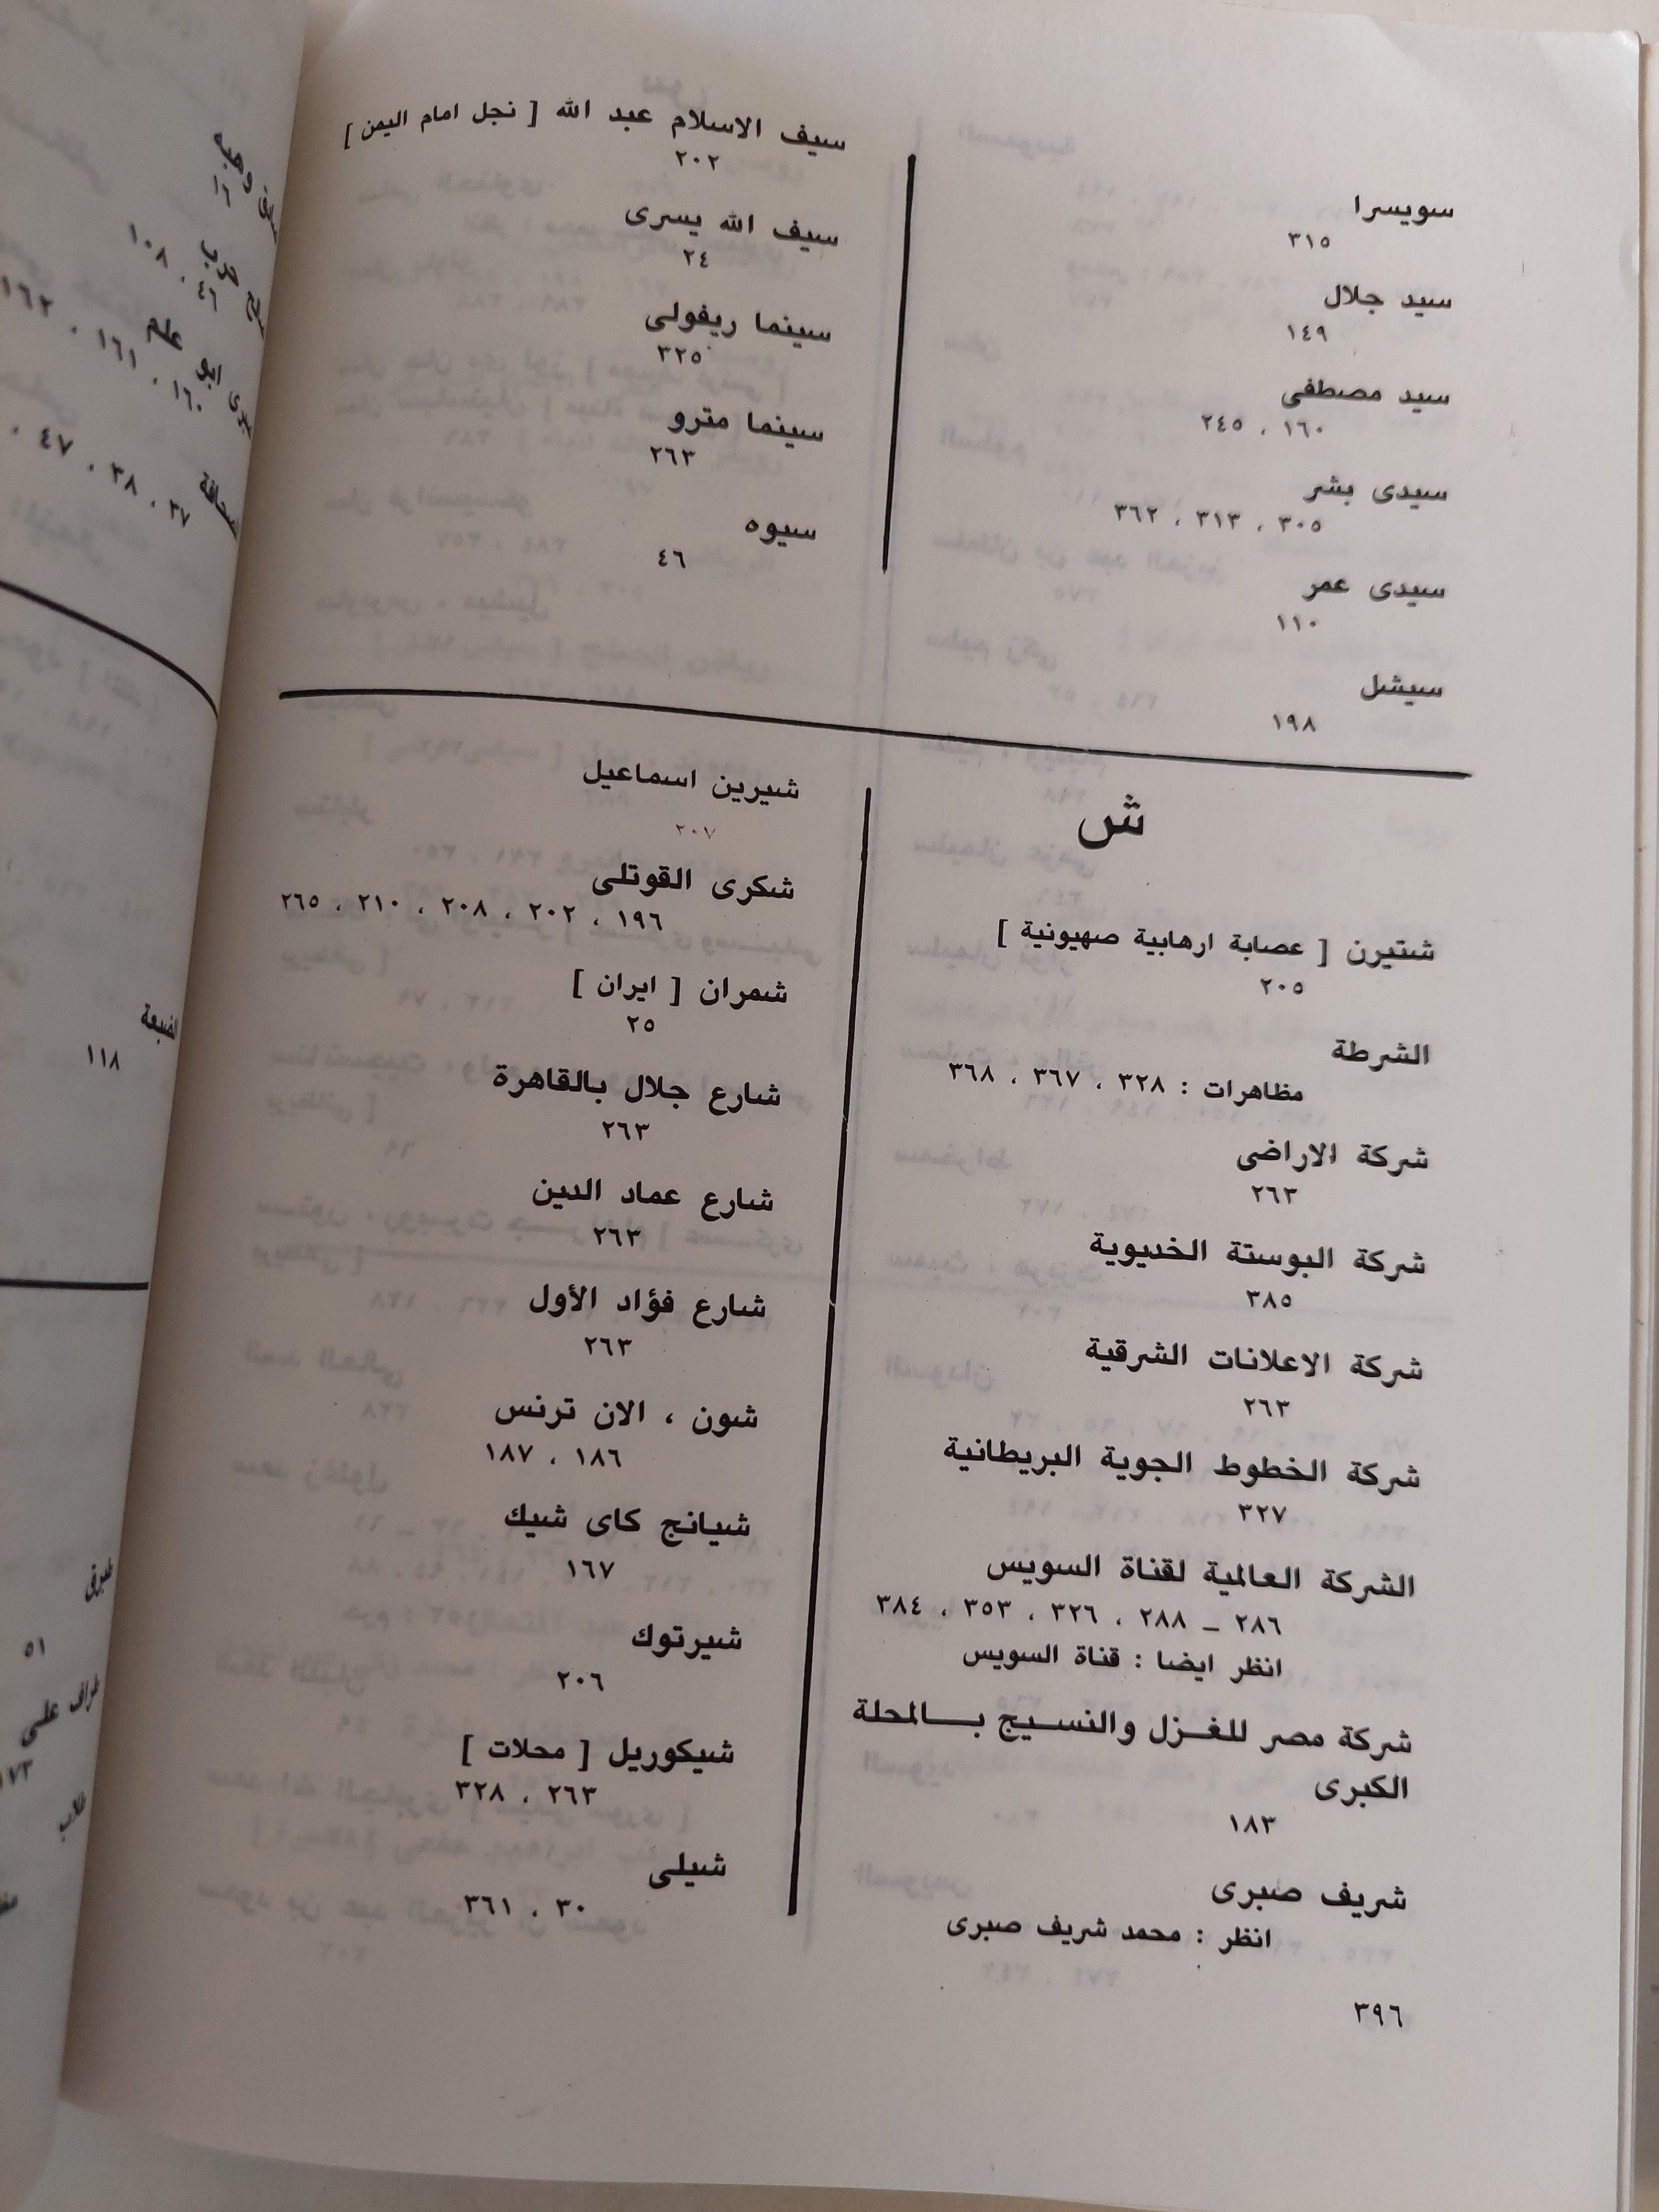 سويسرا
٣١٥
سيد جلال
١٤٩
سيد مصطفى
١٦٠ ، ٢٤٥
سيدى بشر
٣٠٥ ، ٣١٣ ، ٣٦٢
سيدى عمر
١١٠
سيشل
١٩٨
سيف الاسلام عبد الله [ نجل امام اليمن ]
٢٠٢
سيف الله يسرى
٢٤
سينما ريفولى
٣٢٥
سينما مترو
٢٦٣
سيوه
٤٦
ش
شتيرن [ عصابة ارهابية صهيونية ]
٢٠٥
الشرطة
مظاهرات : ٣٢٨ ، ٣٦٧ ، ٣٦٨
شركة الاراضى
٢٦٣
شركة البوستة الخديوية
٣٨٥
شركة الاعلانات الشرقية
٢٦٣
شركة الخطوط الجوية البريطانية
٣٢٧
الشركة العالمية لقناة السويس
٢٨٦ ـ ٢٨٨ ، ٣٢٦ ، ٣٥٣ ، ٣٨٤
انظر ايضا : قناة السويس
شركة مصر للغـزل والنسـيج بـــالمحلة
الكبرى
١٨٣
شريف صبرى
انظر : محمد شريف صبرى
شيرين اسماعيل
٢٠٧
شكرى القوتلى
١٩٦ ، ٢٠٢ ، ٢٠٨ ، ٢١٠ ، ٢٦٥
شمران [ ايران ]
٢٥
شارع جلال بالقاهرة
٢٦٣
شارع عماد الدين
٢٦٣
شارع فؤاد الأول
٢٦٣
شون ، الان ترنس
١٨٦ ، ١٨٧
شيانج كاى شيك
١٦٧
شيرتوك
٢٠٦
شيكوريل [ محلات ]
٢٦٣ ، ٣٢٨
شيلى
٣٠ ، ٣٦١
٣٩٦
وهبه
١٦
حرب
٤٦ ، ١٠٨
ابو علم
١٦٠ ، ١٦١ ، ١٦٢
٣٧ ، ٣٨ ، ٤٧ ،
الضبعة
١١٨
٥١
على